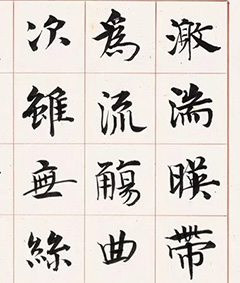 激湍暎帶
為流觴曲
次雖無絲